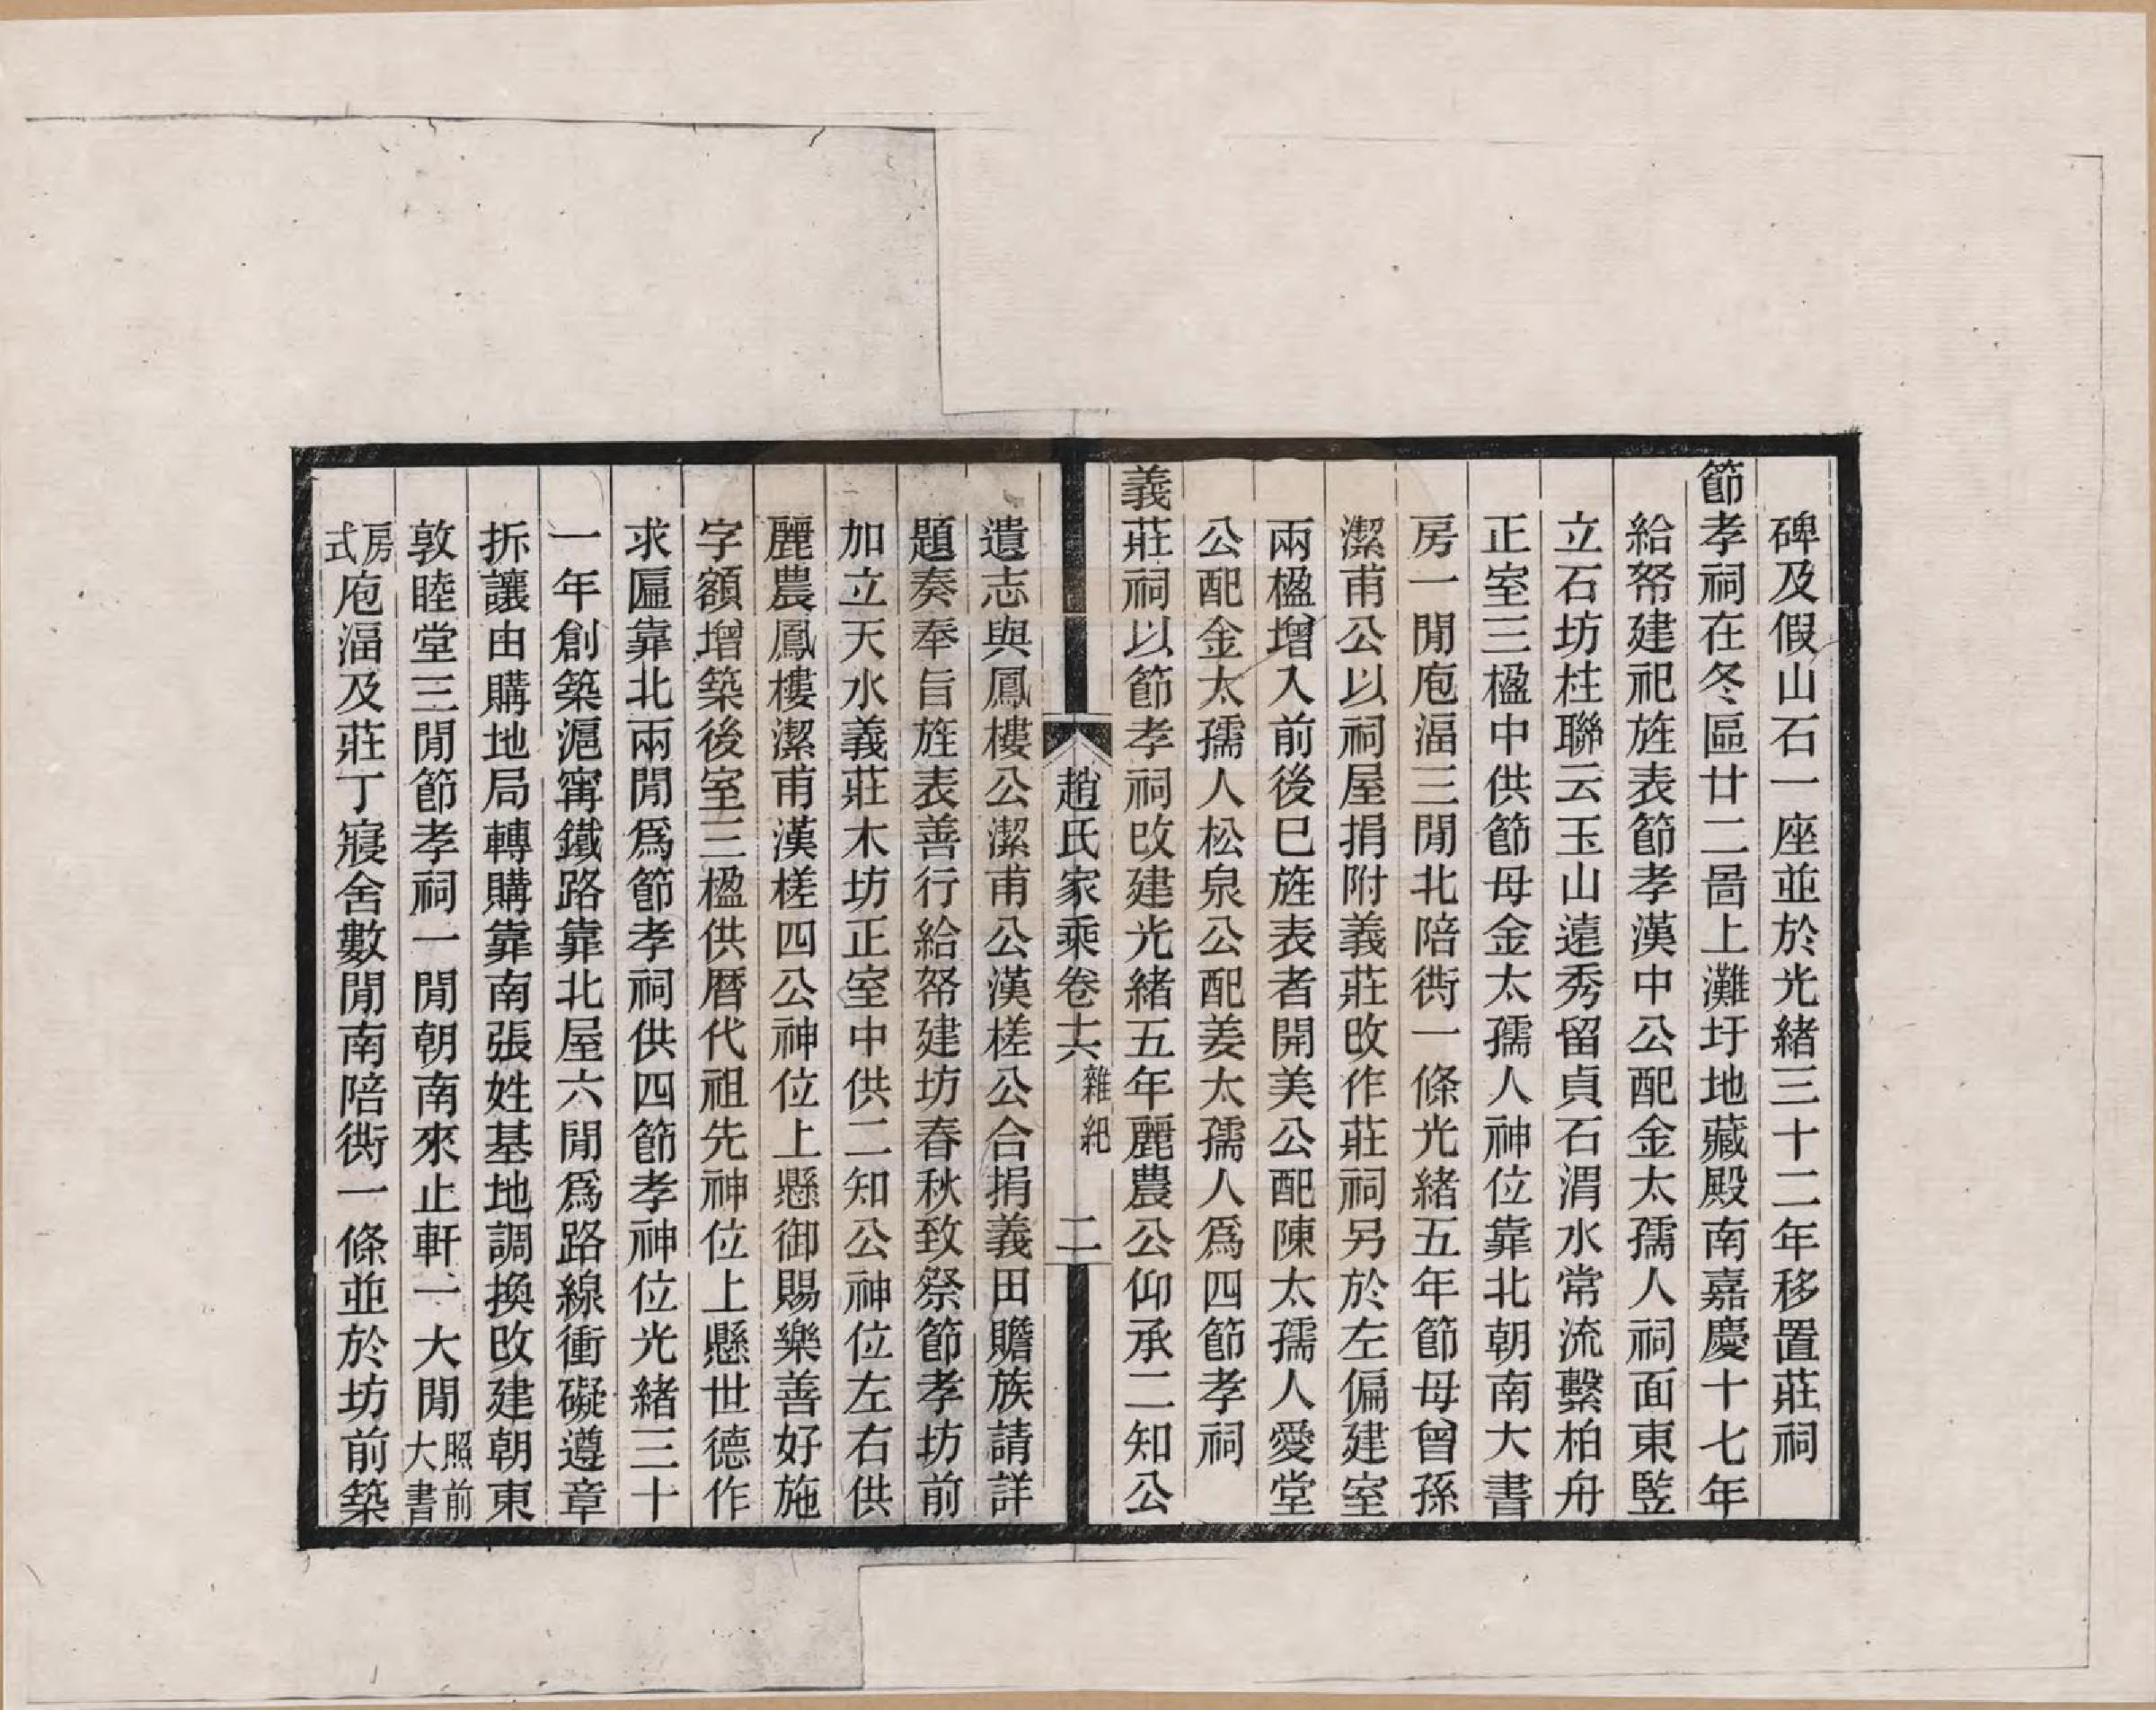 碑及假山石一座並於光緒三十二年移置莊祠
節孝祠在冬區廿二啚上灘圩地藏殿南嘉慶十七年
給帑建祀旌表節孝漢中公配金太孺人祠面東監
立石坊柱聯云玉山遠秀留貞石渭水常流繫柏舟
正室三楹中供節母金太孺人神位靠北朝南大書
房一閒庖湢三閒北陪衖一條光緒五年節母曾孫
潔甫公以祠屋捐附義莊改作莊祠另於左偏建室
兩楹增入前後巳旌表者開美公配陳太孺人愛堂
公配金太孺人松泉公配姜太孺人爲四節孝祠
義莊祠以節孝祠改建光緒五年麗農公仰承二知公
趙氏家乘卷十六 雜紀 二
遺志與鳳樓公潔甫公漢槎公合捐義田贍族請詳
題奏奉旨旌表善行給帑建坊春秋致祭節孝坊前
加立天水義莊木坊正室中供二知公神位左右供
麗農鳳樓潔甫漢槎四公神位上懸御賜樂善好施
字額增築後室三楹供曆代祖先神位上懸世德作
求匾靠北兩閒爲節孝祠供四節孝神位光緒三十
一年創築滬甯鐵路靠北屋六閒爲路線衝礙遵章
拆讓由購地局轉購靠南張姓基地調換改建朝東
敦睦堂三閒節孝祠一閒朝南來止軒一大閒照前大書
房式庖湢及莊丁寢舍數閒南陪衖一條並於坊前築